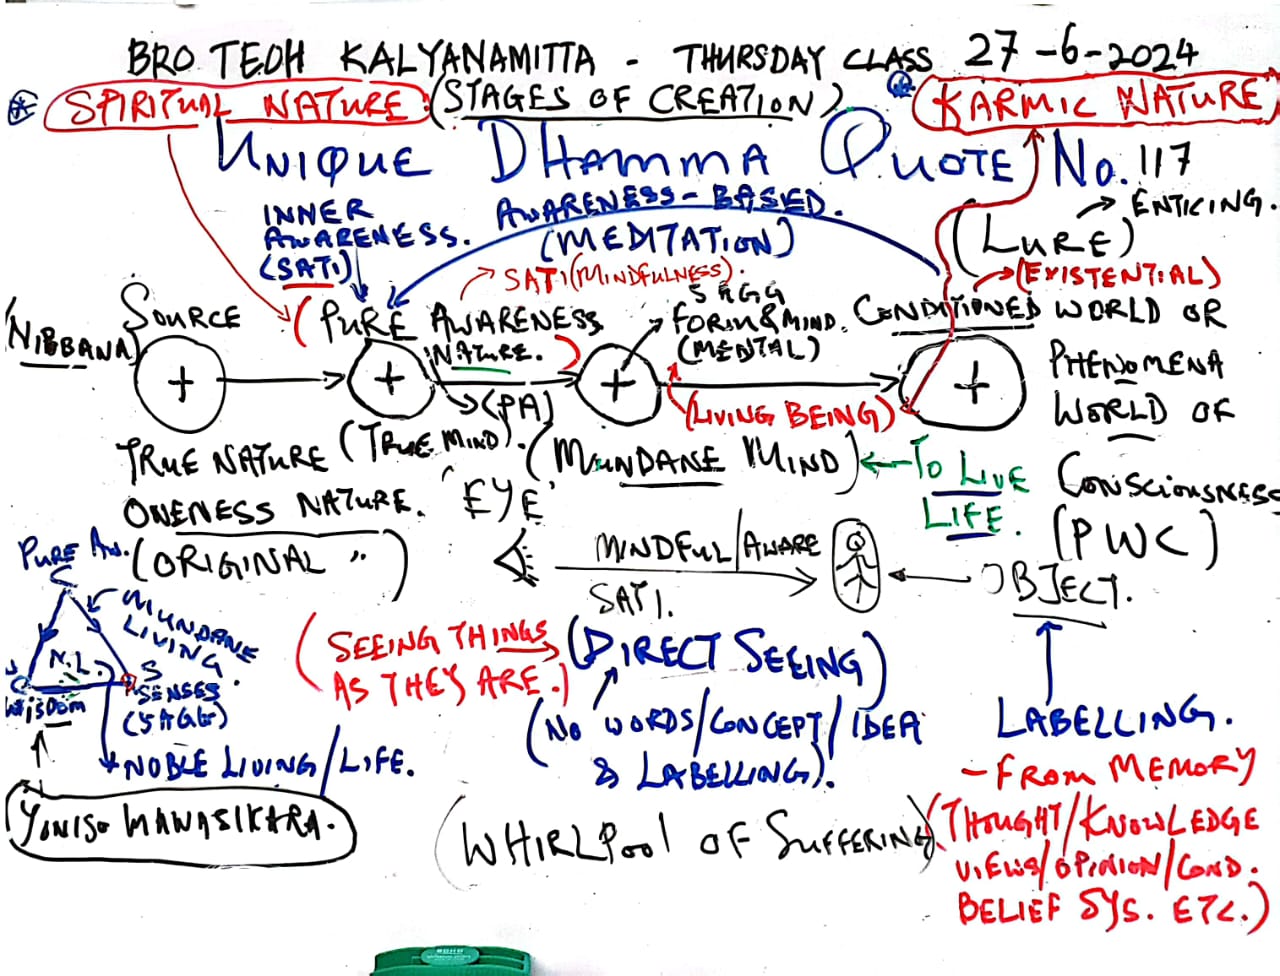 BRO TEOH KALYANAMITTA - THURSDAY CLASS 27-6-2024
SPIRITUAL NATURE: (STAGES OF CREATION) KARMIC NATURE
UNIQUE DHAMMA QUOTE No. 117
INNER AWARENESS.
(SATI)
AWARENESS-BASED.
(MEDITATION)
(LURE) → ENTICING.
→ (EXISTENTIAL)
→ SATI (MINDFULNESS).
5 AGG
FORM & MIND.
(MENTAL)
(NIBBANA)
SOURCE
(PURE AWARENESS
NATURE.)
CONDITIONED WORLD OR
PHENOMENA
WORLD OF
CONSCIOUSNESS
(PWC)
+ + + +
→ (PA)
(LIVING BEING)
TRUE NATURE
ONENESS NATURE.
(ORIGINAL ")
(TRUE MIND).
(MUNDANE MIND) ← TO LIVE
LIFE.
'EYE'
MINDFUL/AWARE
SATI.
OBJECT.
PURE AW.
MUNDANE
LIVING
N.L
S
SENSES.
(5 AGG)
WISDOM
NOBLE LIVING/LIFE.
YONISO MANASIKARA.
(SEEING THINGS
AS THEY ARE.)
(DIRECT SEEING)
(NO WORDS/CONCEPT/IDEA
& LABELLING).
LABELLING.
- FROM MEMORY
(THOUGHT/KNOWLEDGE
VIEWS/OPINION/COND.
BELIEF SYS. ETC.)
(WHIRLPOOL OF SUFFERING)